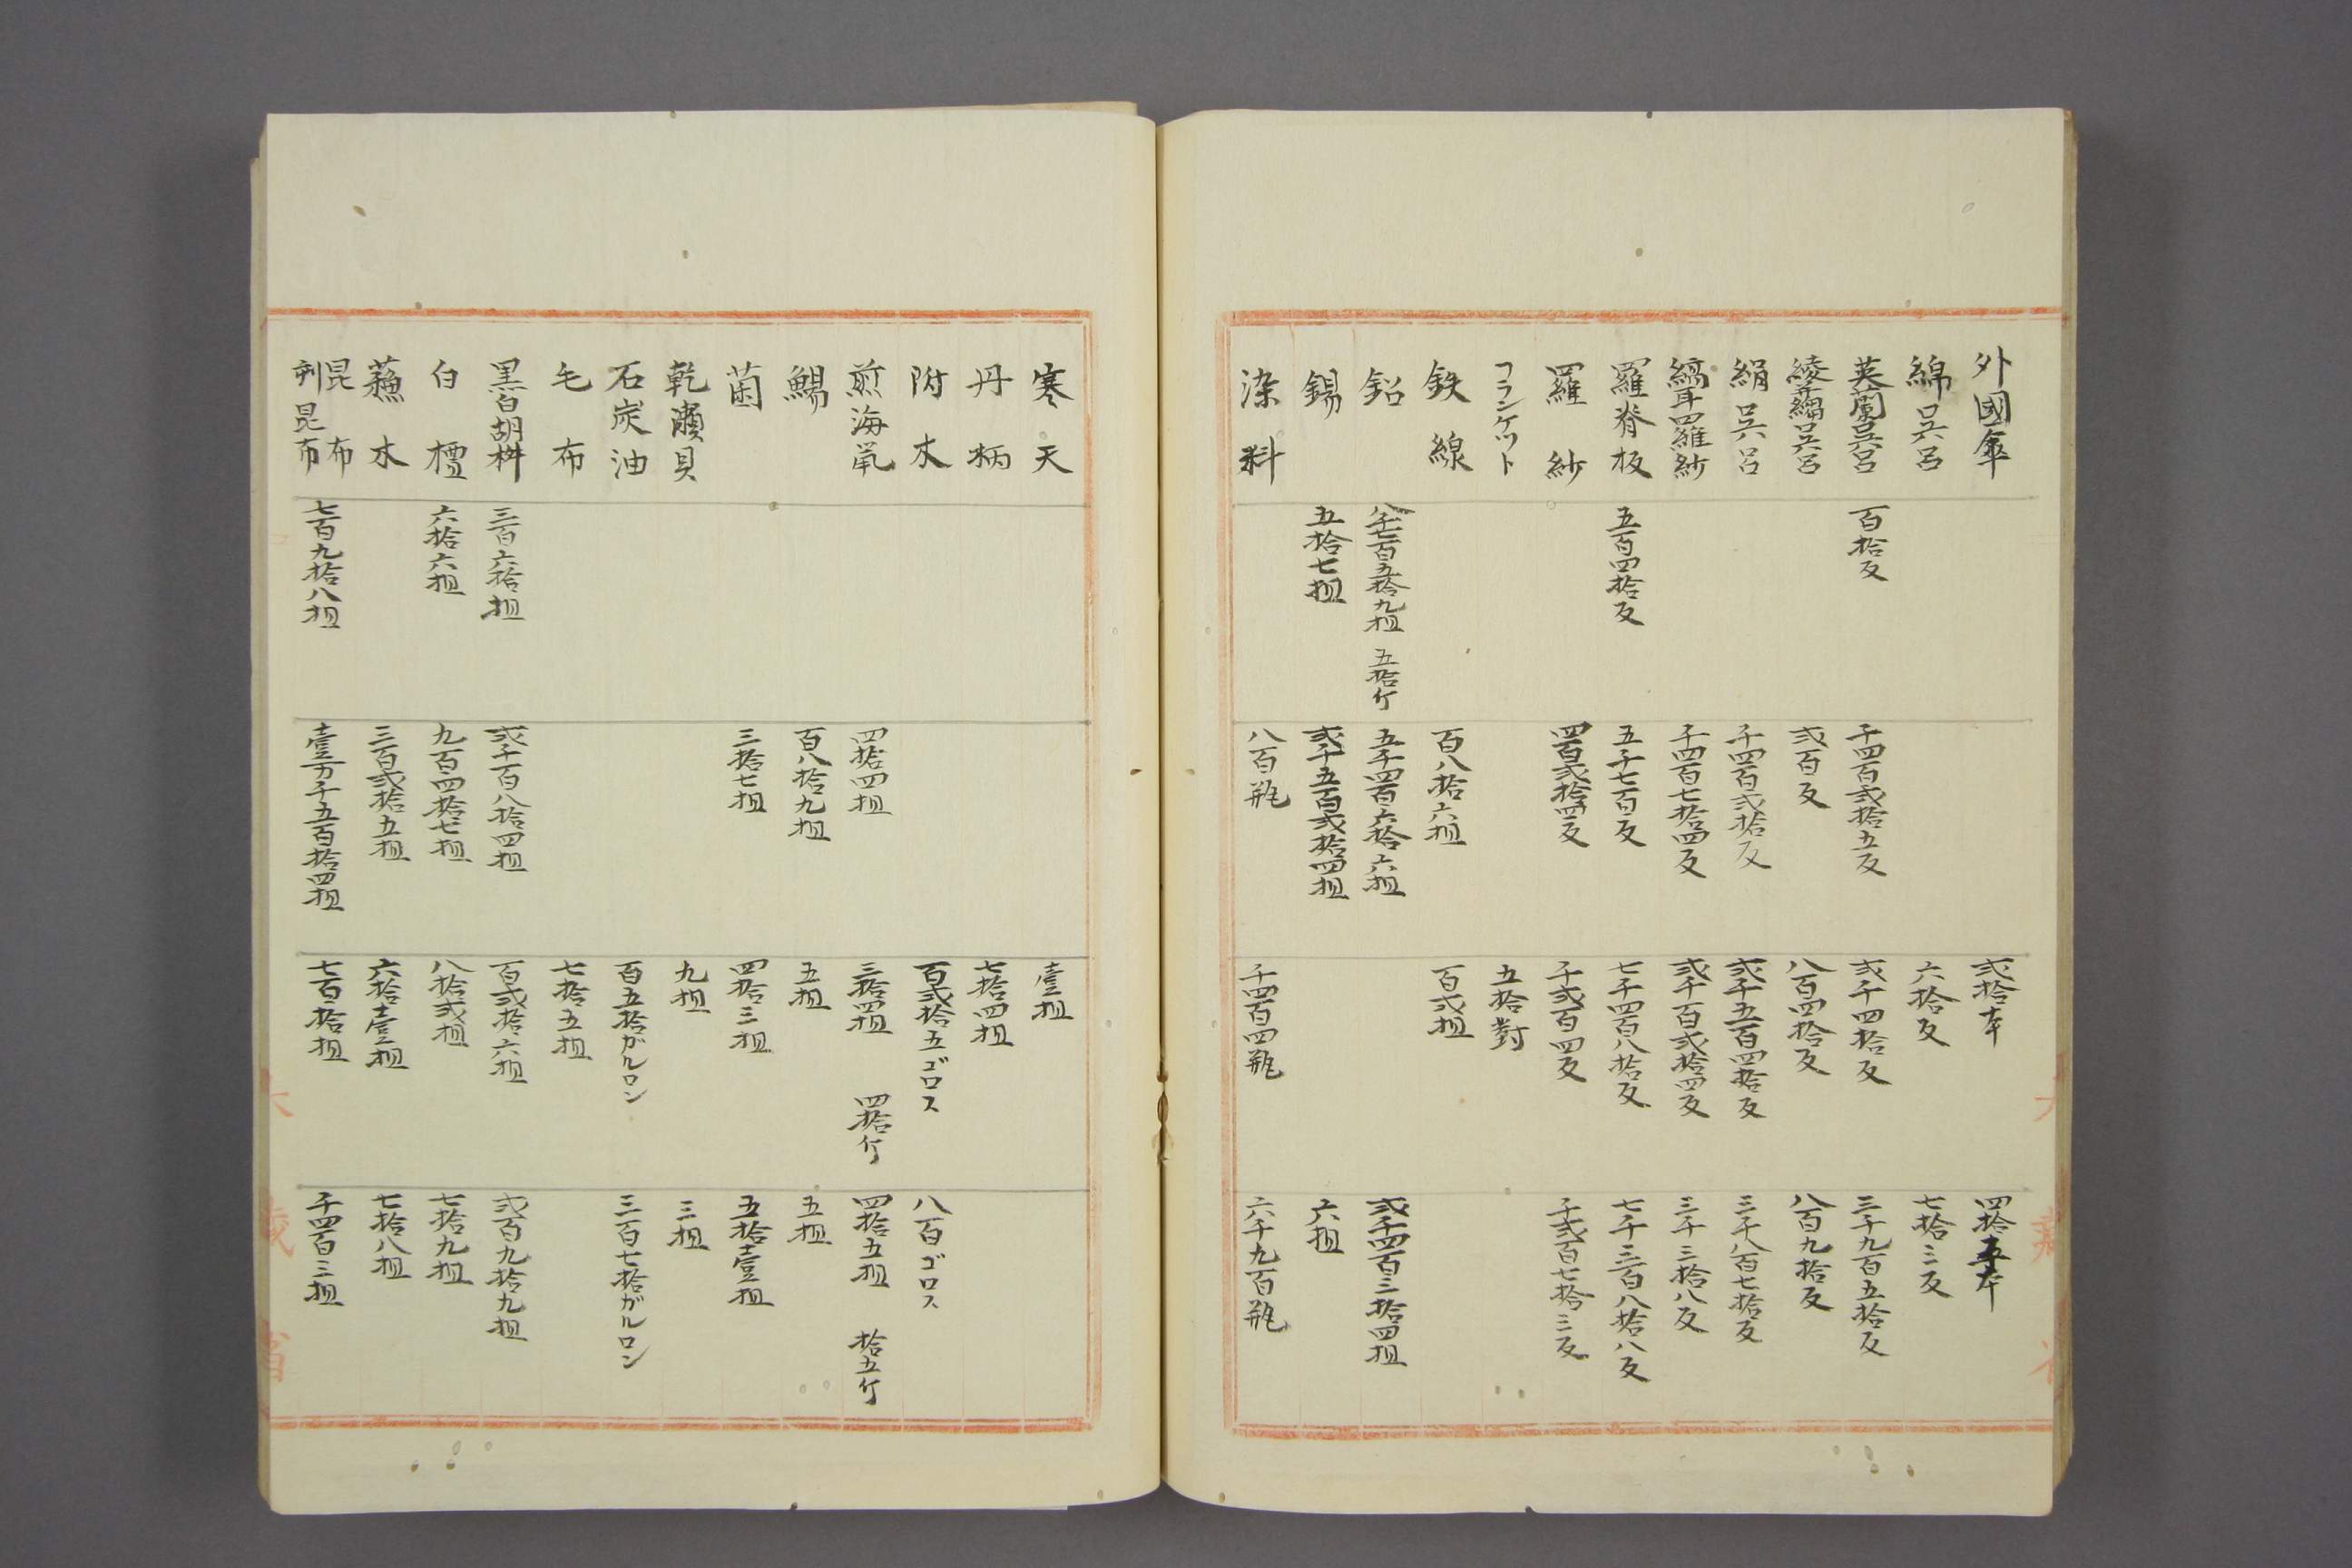 外國傘 弐拾本 四拾五本
綿呉呂 六拾反 七拾三反
英蘭呉呂 百拾反 千四百弐拾五反 弐千四拾反 三千九百五拾反
綾縞呉呂 弐百反 八百四拾反 八百九拾反
絹呉呂 千四百弐拾反 弐千五百四拾反 三千八百七拾反
縞耳羅紗 千四百七拾四反 弐千百弐拾四反 三千三拾八反
羅脊板 五百四拾反 五千七百反 七千四百八拾反 七千三百八拾八反
羅紗 四百弐拾四反 千弐百四反 千弐百七拾三反
フランケット 五拾對
鉄線 百八拾六担 百弐担
鉛 八千七百五拾九担 五拾斤 五千四百六拾六担 弐千四百三拾四担
錫 五拾七担 弐千五百弐拾四担 六担
染料 八百瓶 千四百四瓶 六千九百瓶
寒天 壹担
丹柄 七拾四担
附木 百弐拾五ゴロス 八百ゴロス
煎海鼠 四拾四担 三拾四担 四拾斤 四拾五担 拾五斤
鯣 百八拾九担 五担 五担
菌 三拾七担 四拾三担 五拾壹担
乾瀬貝 九担 三担
石炭油 百五拾ガルロン 三百七拾ガルロン
毛布 七拾五担
黒白胡椒 三百六拾担 弐千百八拾四担 百弐拾六担 弐百九拾九担
白檀 六拾六担 九百四拾七担 八拾弐担 七拾九担
蘓木 三百弐拾五担 六拾壹担 七拾八担
昆布
刻昆布 七百九拾八担 壹万千五百拾四担 七百拾担 千四百三担